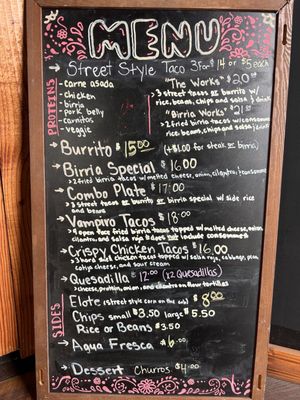 MENU
Street Style Taco 3 for $14 or $5 each
PROTEINS
- carne asada
- chicken
- birria
- pork belly
- carnitos
- veggie
"The Works" $20
3 street tacos or burrito w/
rice, beans, chips and salsa, & drink
"Birria Works" $21
2 fried birria tacos w/consomme
rice, beans, chips and salsa, & drink
Burrito $15.00 (+$1.00 for steak or birria)
Birria Special $16.00
2 fried birria tacos w/melted cheese, onion, cilantro, & consomme
Combo Plate $17.00
3 street tacos or burrito or birria special w/ side rice
and beans
Vampiro Tacos $18.00
open face fried birria tacos topped w/ melted cheese, onion,
cilantro, and salsa roja & does not include consomme
Crispy Chicken Tacos $16.00
3 hard shell chicken tacos topped w/ salsa roja, cabbage,
cotija cheese, and sour cream
Quesadilla $12.00 (12 Quesadillas)
cheese, protein, onion, and cilantro on flour tortillas
SIDES
Elote (street style corn on the cob) $8.00
Chips small $3.50 large $5.50
Rice or Beans $3.50
Agua Fresca $6.00
Dessert Churros $4.00